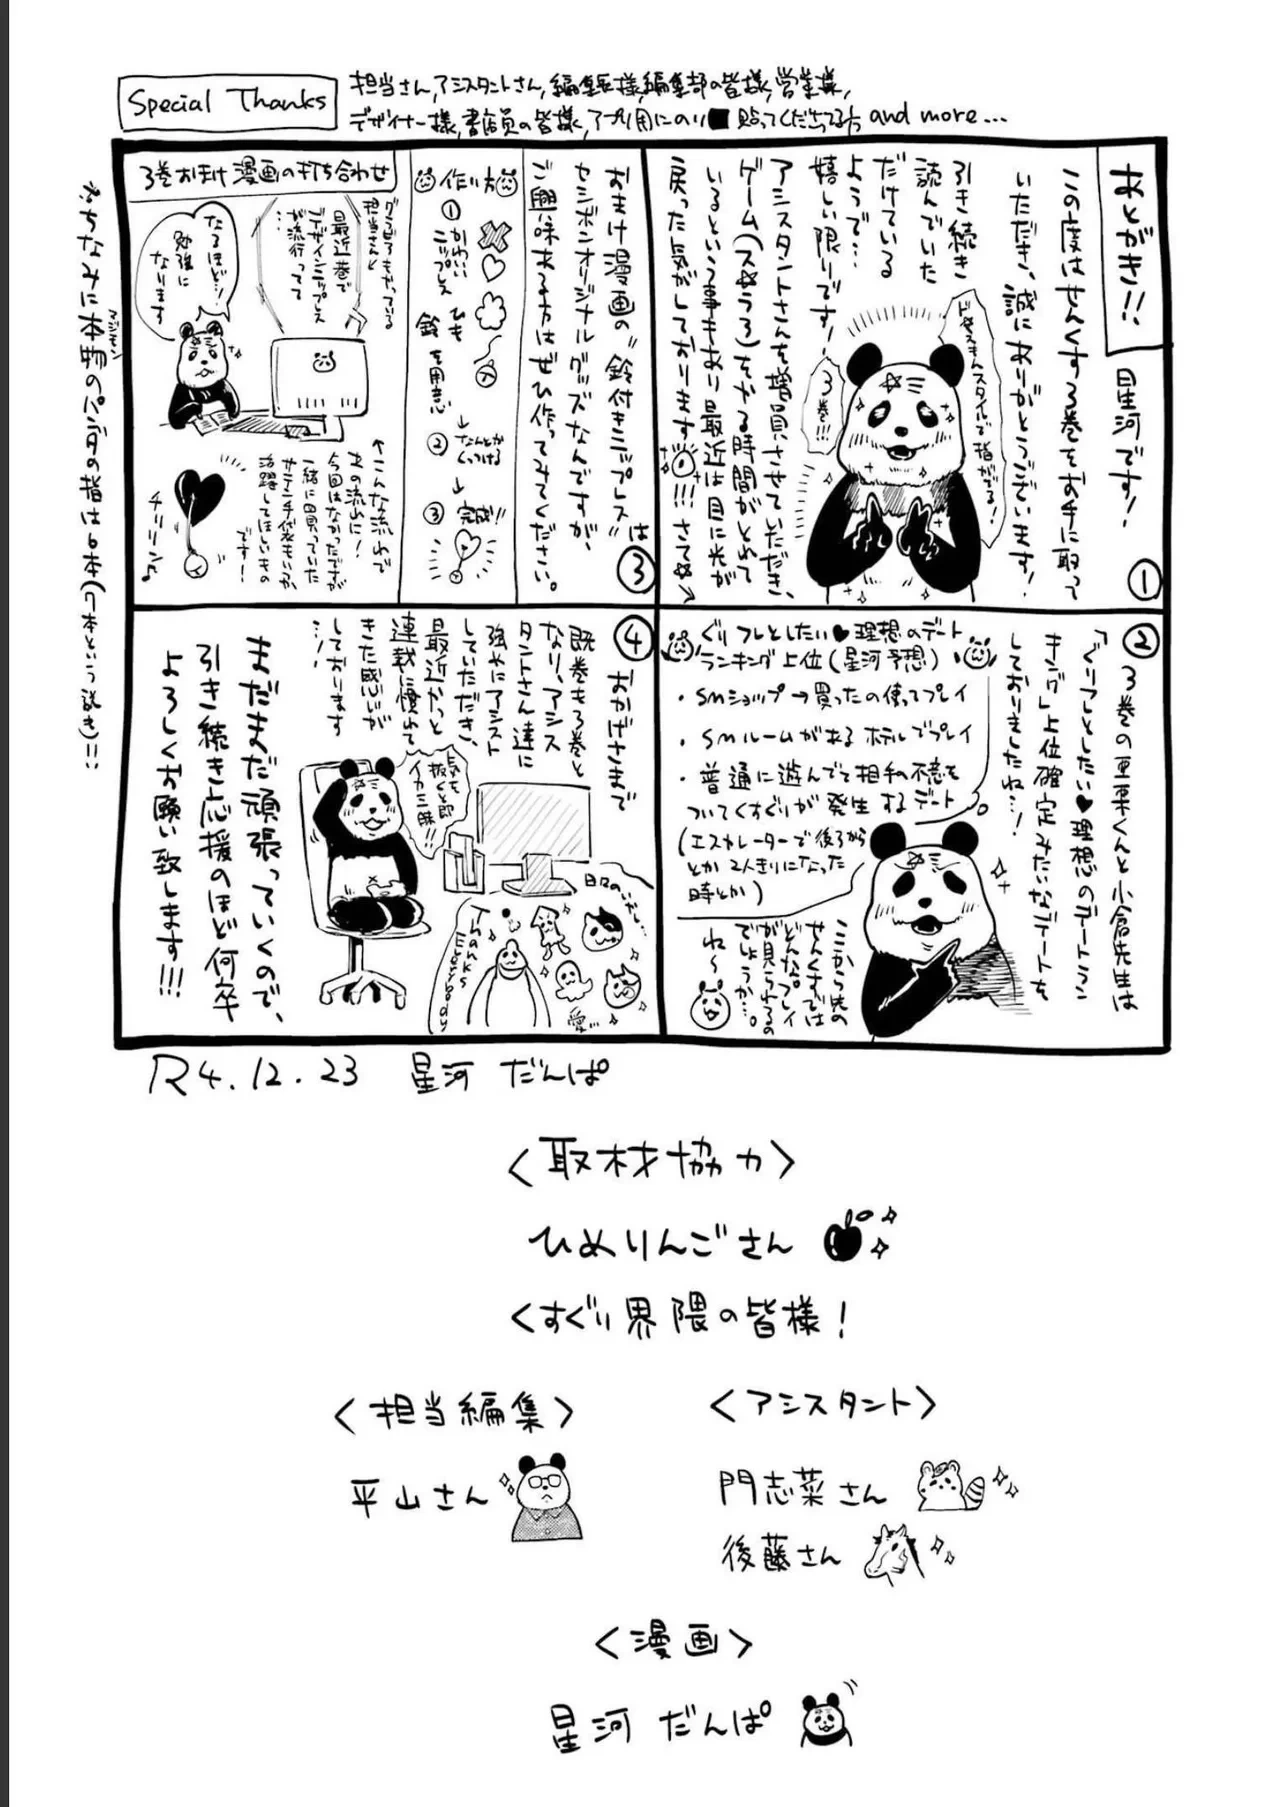 Special Thanks
担当さん,アシスタントさん,編集長様,編集部の皆様,営業様,
デザイナー様,書店員の皆様,アプリ用にのり■貼ってくださってる方 and more…
あとがき!!
星河です!
この度はせんくすする3巻をお手に取って
いただき、誠にありがとうございます!
引き続き
読んでいた
だけている
ようで…
嬉しい限りです!
ド✡えもんスタイルで指がでる!
3巻!!!
アシスタントさんを増員させていただき、
ゲーム(ス✡うろ)をやる時間がとれて
いるという事もあり最近は目に光が
戻った気がしております!!! さて✡
①
②
3巻の亜栗くんと小倉先生は
「ぐりフレとしたい♥理想のデートラン
キング」上位確定みたいなデートを
しておりましたね…!
ぐりフレとしたい♥理想のデート
ランキング上位(星河予想)
・SMショップ→買ったの使ってプレイ
・SMルームがあるホテルでプレイ
・普通に遊んでて相手の不意を
ついてくすぐりが発生するデート
(エスカレーターで後ろから
とか2人きりになった
時とか)
ここから先の
せんくすでは
どんなプレイ
が見られるの
でしょうか…。
ね〜
③
おまけ漫画の"鈴付きニップレス"は
センシボンオリジナルグッズなんですが、
ご興味ある方はぜひ作ってみてください。
作り方
①かわいいニップレス
ひも
鈴 を用意
↓
②なんとか
くっつける
↓
③完成!!
3巻おまけ漫画の打ち合わせ
グラブるもやっている
担当さんと
最近巷で
デザインニップレス
が流行ってて
…
なるほど…!
勉強に
なります
←こんな流れで
あの流れに!
今回はなかったですが
一緒に買っていた
サテン手袋もいつか
活躍してほしいもの
です!
チリリン♪
④
おかげさまで
既巻も3巻と
なり、アシス
タントさん達に
強めにアシスト
していただき、
最近やっと
連載に慣れて
きた感じが
しております
…!
気を
抜くと即
イカ三昧!!
日々のいやし…
Thanks
Everybody
愛…
まだまだ頑張っていくので、
引き続き応援のほど何卒
よろしくお願い致します!!!
※ちなみに本物のパンダの指は6本(7本という説も)!!
R4.12.23 星河 だんぱ
<取材協力>
ひめりんごさん
くすぐり界隈の皆様!
<担当編集>
平山さん
<アシスタント>
門志菜さん
後藤さん
<漫画>
星河 だんぱ